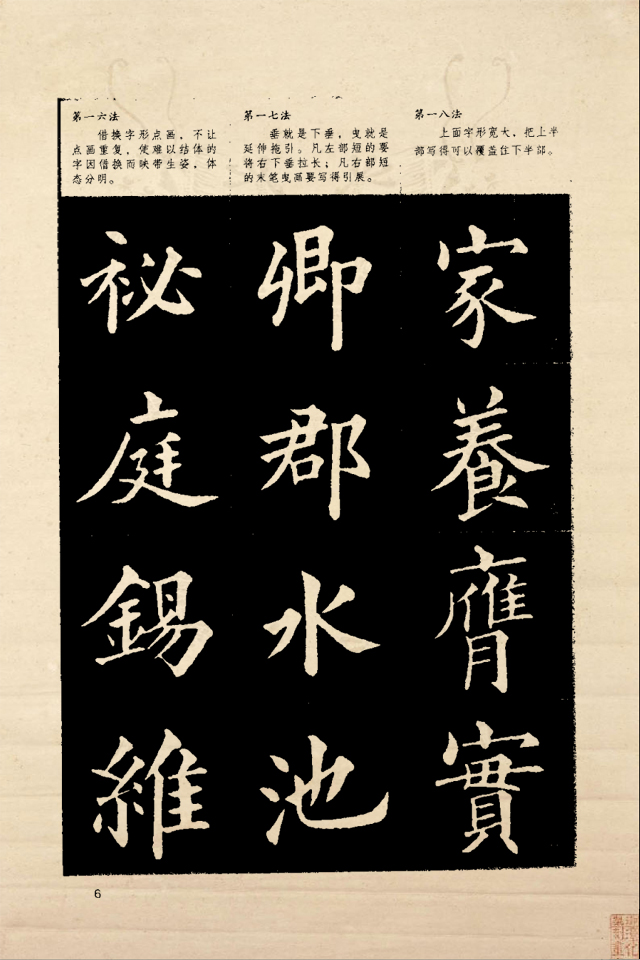 第一六法
借换字形点画，不让
点画重复，使难以结体的
字因借换而映带生姿，体
态分明。
第一七法
垂就是下垂，曳就是
延伸拖引。凡左部短的要
将右下垂拉长；凡右部短
的末笔曳画要写得引展。
第一八法
上面字形宽大，把上半
部写得可以覆盖住下半部。
祕庭錫維
卿郡水池
家養膺實
6